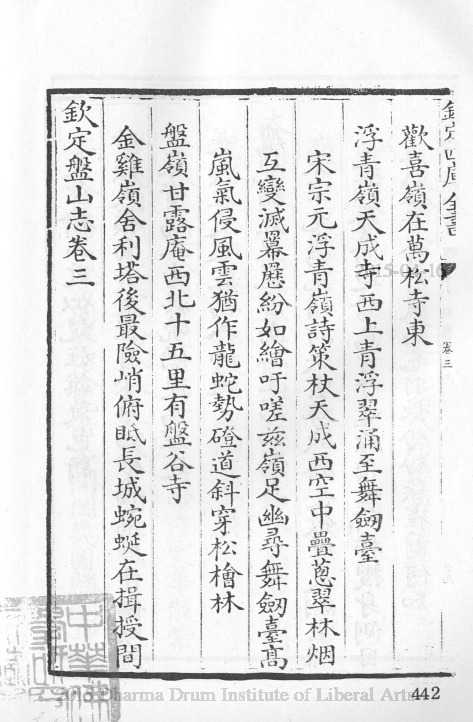 欽定四庫全書
卷三
歡喜嶺在萬松寺東
浮青嶺天成寺西上青浮翠涌至舞劒臺
宋宗元浮青嶺詩策杖天成西空中疊蔥翠林烟
互變滅羃歷紛如繪吁嗟茲嶺足幽尋舞劒臺高
嵐氣侵風雲猶作龍蛇勢磴道斜穿松檜林
盤嶺甘露庵西北十五里有盤谷寺
金雞嶺舍利塔後最險峭俯眡長城蜿蜒在揖授間
欽定盤山志卷三
Dharma Drum Institute of Liberal Arts
442